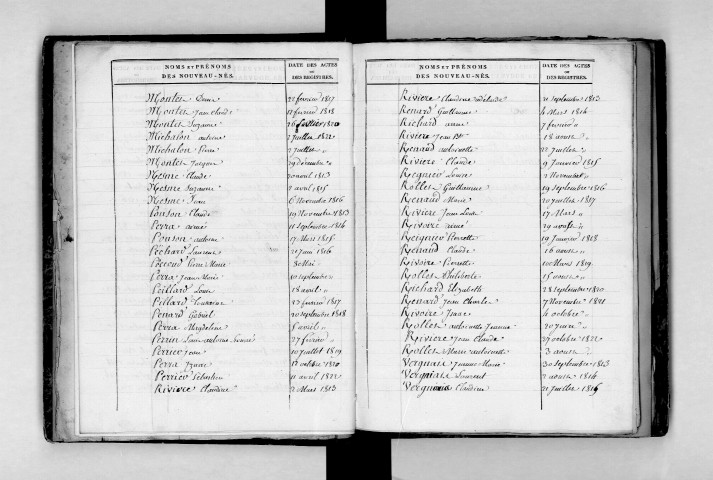 NOMS ET PRÉNOMS
DES NOUVEAU-NÉS.
DATE DES ACTES
OU
DES REGISTRES.
Montet 21 fevrier 1817
Montet Jean Claude 17 fevrier 1818
Montet Suzanne 26 1820
Michalon antoine 7 juillet 1822
Michalon Pierre 2 juillet "
Montet 29 decembre "
Mesme Claude 30 aout 1813
Mesme Suzanne 2 avril 1815
Mesme Jean 6 Novembre 1816
Ponson Claude 19 Novembre 1813
Perra aimé 11 Septembre 1814
Ponson antoine 17 Mai 1815
Péchard Laurent 21 juin 1816
Pierre Marie 8 Mai
Perra Jean Marie 10 septembre "
Peillard Louis 18 avril "
Pillard 23 fevrier 1817
Penard Gabriel 20 septembre 1818
Perra Magdeleine 5 avril "
Perrin 27 fevrier "
Perrier Jean 10 juillet 1819
Perra 12 octobre 1820
Perrier Sébastien 11 avril 1822
Riviere Claudine 2 Mars 1813
NOMS ET PRÉNOMS
DES NOUVEAU-NÉS.
DATE DES ACTES
OU
DES REGISTRES.
Riviere Claudine adélaïde 21 septembre 1813
Renard Guillaume 4 Mars 1814
Richard aimé 7 fevrier "
Riviere Jean Bte 18 aoust "
Renaud antoinette 22 juillet "
Riviere Claude 9 Janvier 1815
Louise 2 Novembre "
Rollet Guillaume 19 septembre 1816
Renaud Marie 20 juillet 1817
Riviere Jean 17 Mars "
Rivoire aimé 29 aoust "
Pierrette 19 Janvier 1818
Renaud Claude 16 aoust "
Rivoire Pierrette 10 Mars 1819
Rollet Philiberte 15 aoust "
Richard Elizabeth 28 septembre 1820
Renard Jean Charles 7 Novembre 1821
Rivoire Jeane 4 octobre "
Rollet antoinette 20 juin "
Riviere Jean Claude 27 octobre 1822
Rollet Marie antoinette 3 aoust "
Vergnais Jeanne Marie 30 Septembre 1813
Vergniais Laurent 2 aoust 1814
Claudine 21 Juillet 1816